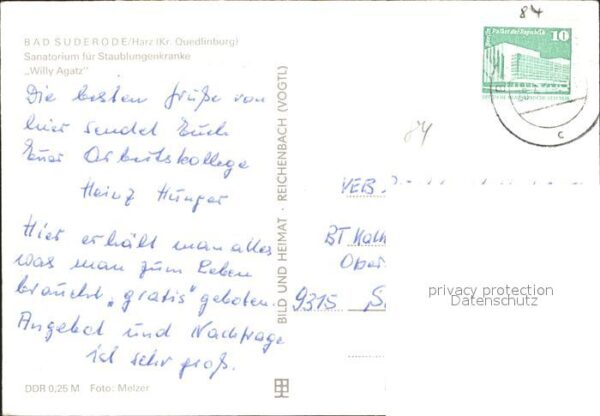 84
BAD SUDERODE/Harz (Kr. Quedlinburg)
Sanatorium für Staublungenkranke
„Willy Agatz"
Die besten Grüße von
hier sendet Euch
Euer Arbeitskollege
Heinz Hunger
Hier erhält man alles
was man zum Leben
braucht „gratis" geboten.
Angebot und Nachfrage
ist sehr groß.
DDR 0,25 M Foto: Melzer
BILD UND HEIMAT · REICHENBACH (VOGTL)
Palast der Republik
10
c
84
VEB
BT
Ober
9315
privacy protection
Datenschutz